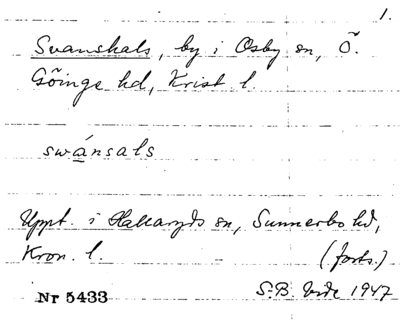 1.
Svanshals, by i Osby sn, Ö.
Göinge hd, Krist l.
swánsals
Uppt. i Hallaryds sn, Sunnerbo hd,
Kron. l. (forts.)
Nr 5433 S-B. Vide 1947